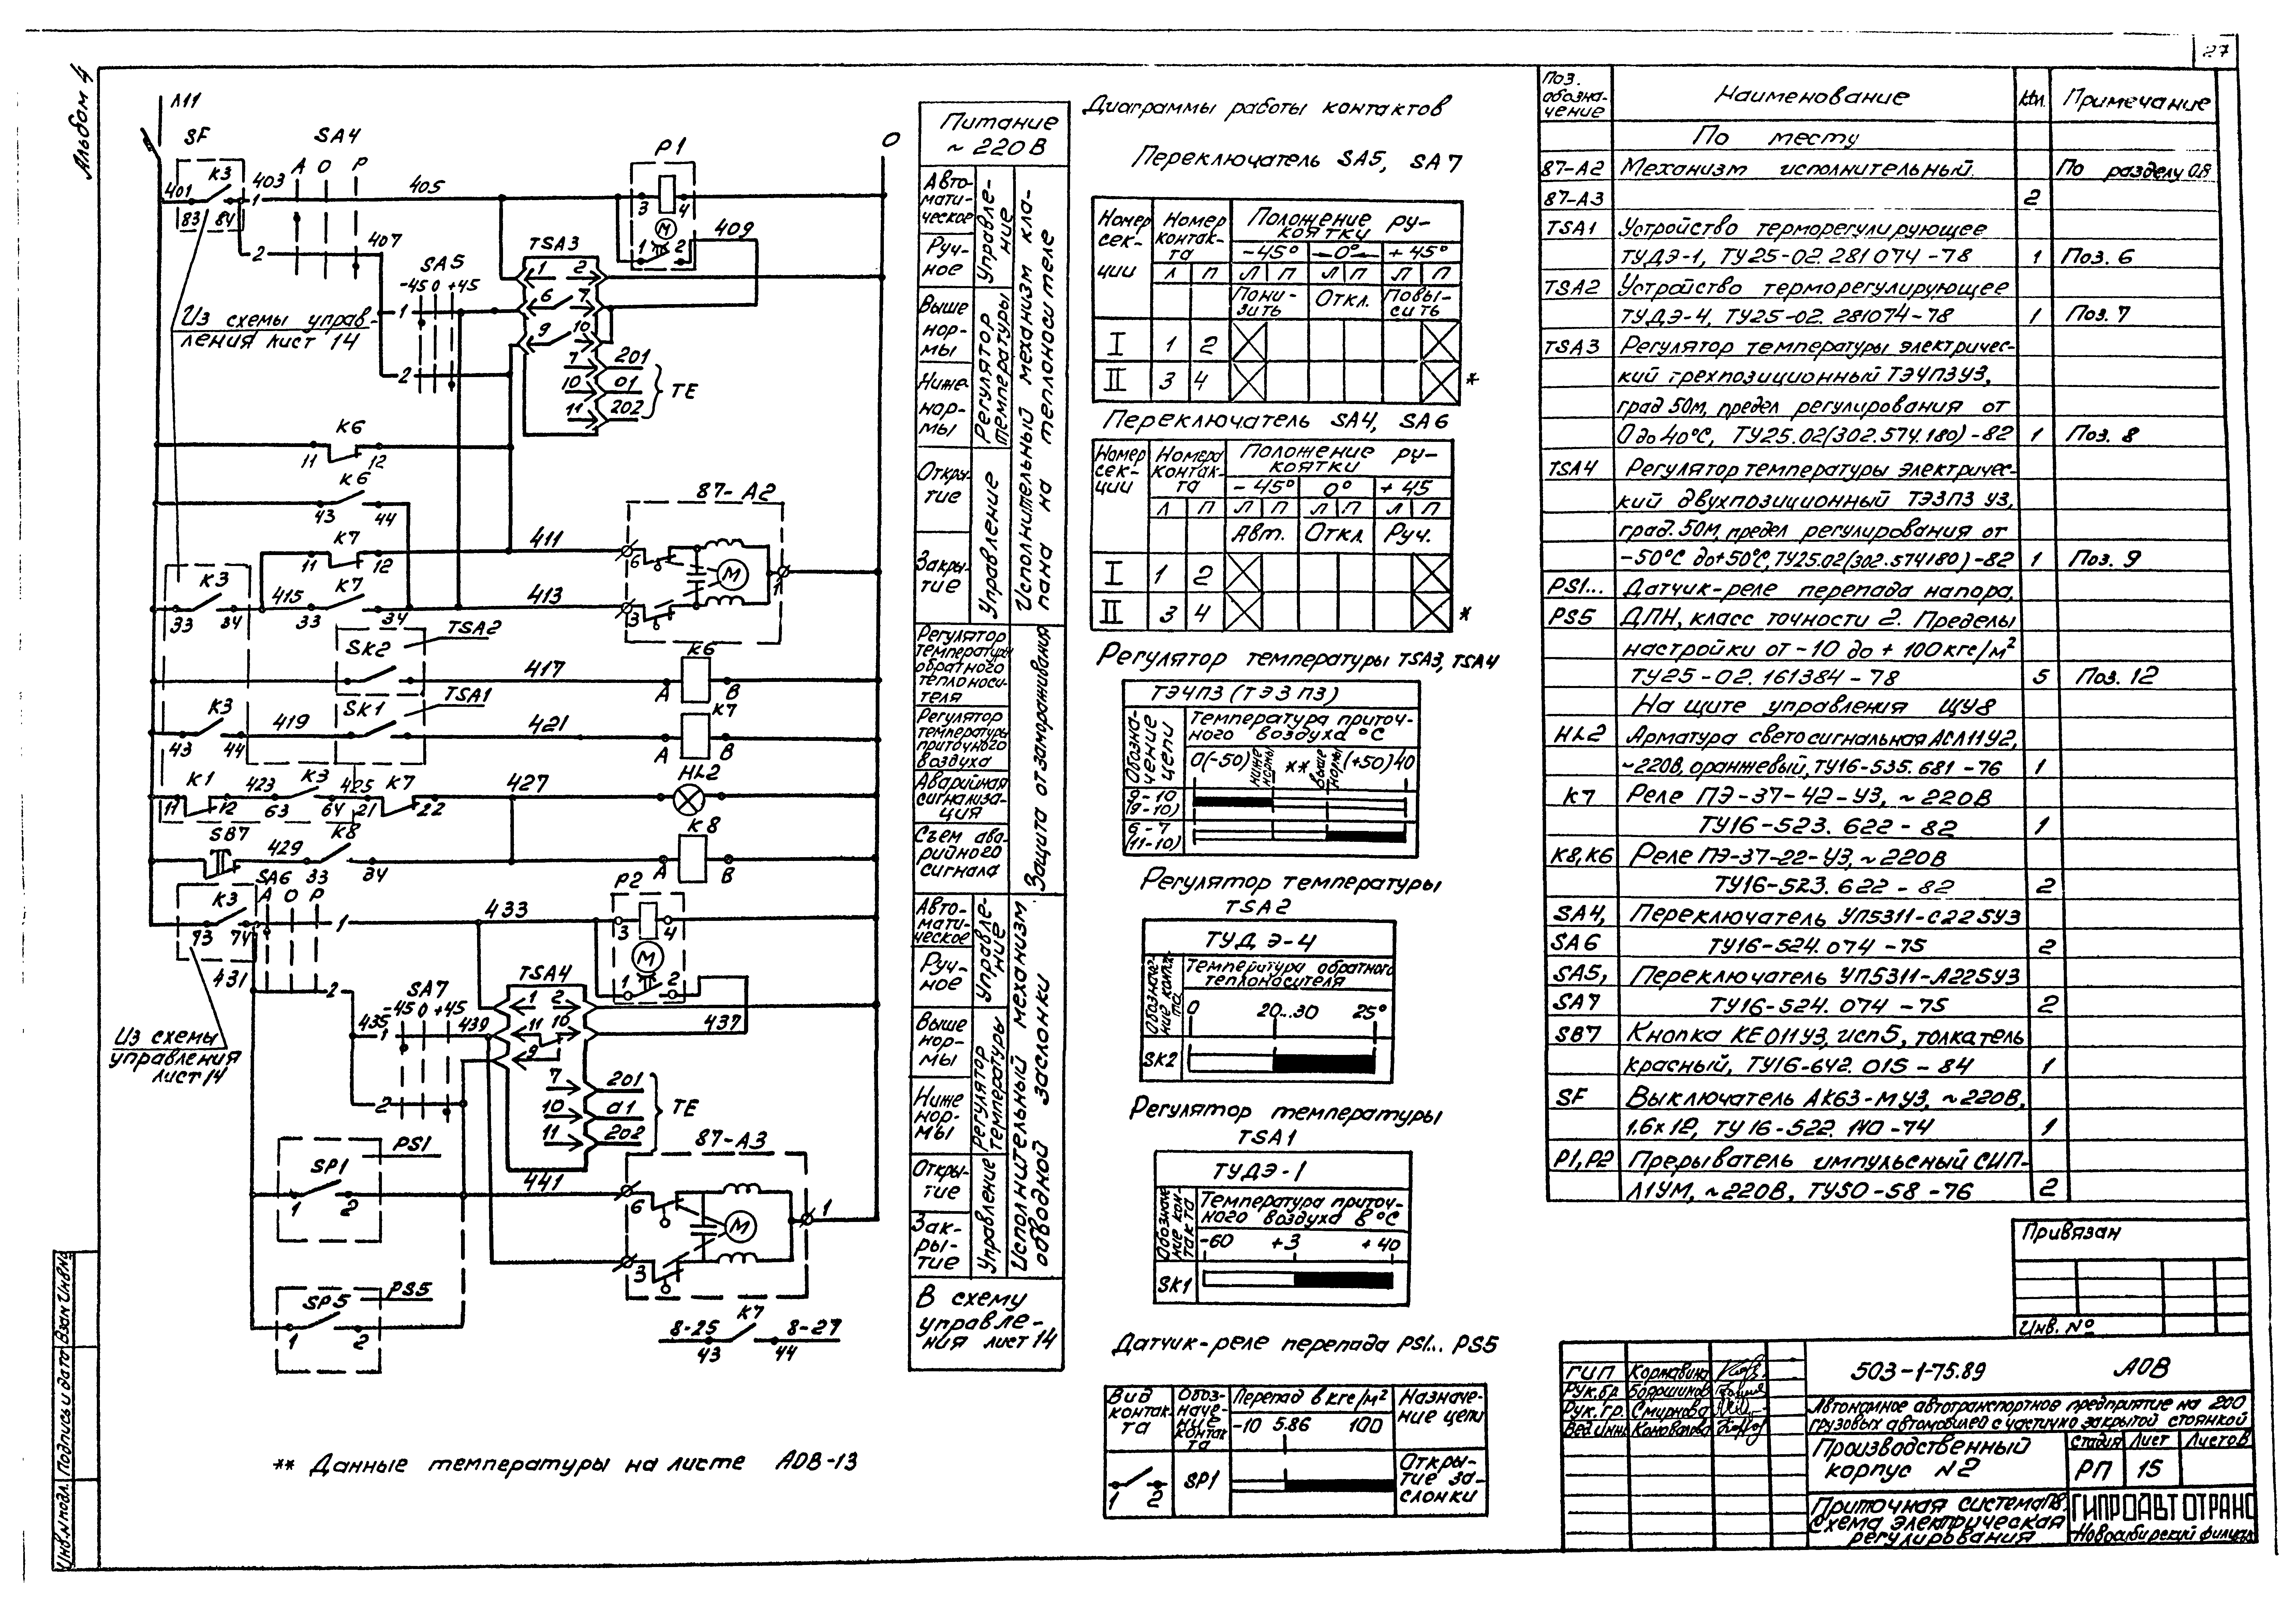 27
Альбом 4
Л11
SF
SA4
К3
401
403
А О Р
405
83 84
1
2
407
Р1
3 4
М
1 2
409
0
TSA3
1 2
6 7
9 10
7 201
10 01
11 202
ТЕ
SA5
-45 0 +45
1
2
Из схемы управ-
ления лист 14
К6
11 12
К6
43 44
К7
11 12
411
К3
33 34
415
К7
33 34
413
87-А2
6
3
М
1
TSA2
SK2
417
К6
А В
TSA1
SK1
К3
43 44
419
421
К7
А В
К1
11 12
423
К3
63 64
425
К7
21 22
427
HL2
SB7
429
К8
33 34
К8
А В
SA6
А О Р
К3
73 74
1
433
431
2
Р2
3 4
М
1 2
437
TSA4
1 2
11 10
9
7 201
10 01
11 202
ТЕ
SA7
-45 0 +45
435
1
439
2
Из схемы
управления
лист 14
PS1
SP1
1 2
441
PS5
SP5
1 2
87-А3
6
3
М
1
8-25 К7 8-27
43 44
** Данные температуры на листе АОВ-13
Питание
~ 220 В
Авто-
мати-
ческое
Руч-
ное
Управле-
ние
Выше
нор-
мы
Ниже
нор-
мы
Регулятор
температуры
Откры-
тие
Закры-
тие
Управление
Исполнительный механизм кла-
пана на теплоносителе
Регулятор
температуры
обратного
теплоноси-
теля
Регулятор
температуры
приточного
воздуха
Аварийная
сигнализа-
ция
Съем ава-
рийного
сигнала
Защита от замораживания
Авто-
мати-
ческое
Руч-
ное
Управле-
ние
Выше
нор-
мы
Ниже
нор-
мы
Регулятор
температуры
Откры-
тие
Зак-
ры-
тие
Управление
Исполнительный механизм
обводной заслонки
В схему
управле-
ния лист 14
Диаграммы работы контактов
Переключатель SA5, SA7
Номер
сек-
ции
Номер
контак-
та
Положение ру-
коятки
-45° 0° +45°
Л П Л П Л П Л П
Пони-
зить
Откл.
Повы-
сить
I 1 2
II 3 4 *
Переключатель SA4, SA6
Номер
сек-
ции
Номера
контак-
та
Положение ру-
коятки
-45° 0° +45
Л П Л П Л П Л П
Авт. Откл. Руч.
I 1 2
II 3 4 *
Регулятор температуры TSA3, TSA4
ТЭ4П3 (ТЭ3П3)
Обозна-
чение
цепи
Температура приточ-
ного воздуха °С
0(-50) ниже нормы ** выше нормы (+50)40
9-10
(9-10)
6-7
(11-10)
Регулятор температуры
TSA2
ТУДЭ-4
Температура обратного
теплоносителя
0 20..30 25°
SK2
Регулятор температуры
TSA1
ТУДЭ-1
Обозначе
ние кон-
такта
Температура приточ-
ного воздуха в °С
-60 +3 +40
SK1
Датчик-реле перепада PS1... PS5
Вид
контак-
та
Обоз-
наче-
ние
контак-
та
Перепад в кгс/м²
-10 5.86 100
Назначе-
ние цепи
1 2
SP1
Откры-
тие за-
слонки
Поз.
обозна-
чение
Наименование
Кол.
Примечание
По месту
87-А2 Механизм исполнительный По разделу ОВ
87-А3 2
TSA1 Устройство терморегулирующее
ТУДЭ-1, ТУ25-02.281074-78 1 Поз. 6
TSA2 Устройство терморегулирующее
ТУДЭ-4, ТУ25-02.281074-78 1 Поз. 7
TSA3 Регулятор температуры электричес-
кий трехпозиционный ТЭ4П3У3,
град 50м, предел регулирования от
0 до 40°С, ТУ25.02(302.574.180)-82 1 Поз. 8
TSA4 Регулятор температуры электричес-
кий двухпозиционный ТЭ3П3 У3,
град. 50м, предел регулирования от
-50°С до +50°С, ТУ25.02(302.574180)-82 1 Поз. 9
PS1... Датчик-реле перепада напора,
PS5 ДПН, класс точности 2. Пределы
настройки от -10 до + 100 кгс/м²
ТУ25-02.161384-78 5 Поз. 12
На щите управления ЩУ8
HL2 Арматура светосигнальная АСЛ11У2,
~220В, оранжевый, ТУ16-535.681-76 1
К7 Реле ПЭ-37-42-У3, ~220В
ТУ16-523.622-82 1
К8, К6 Реле ПЭ-37-22-У3, ~220В
ТУ16-523.622-82 2
SA4, Переключатель УП5311-С225У3
SA6 ТУ16-524.074-75 2
SA5, Переключатель УП5311-А225У3
SA7 ТУ16-524.074-75 2
SB7 Кнопка КЕ011У3, исп5, толкатель
красный, ТУ16-642.015-84 1
SF Выключатель АК63-МУ3, ~220В,
1.6х12, ТУ16-522.140-74 1
Р1, Р2 Прерыватель импульсный СИП-
Л1УМ, ~220В, ТУ50-58-76 2
Привязан
Инв. №
ГИП
Рук.бр
Рук.гр. Смирнова
Вед.инж Коновалова
503-1-75.89 АОВ
Автономное автотранспортное предприятие на 200
грузовых автомобилей с частично закрытой стоянкой
Производственный
корпус №2
Стадия Лист Листов
РП 15
Приточная система П8.
Схема электрическая
регулирования
ГИПРОАВТОТРАНС
Новосибирский филиал
Инв.№ подл. Подпись и дата Взам инв№